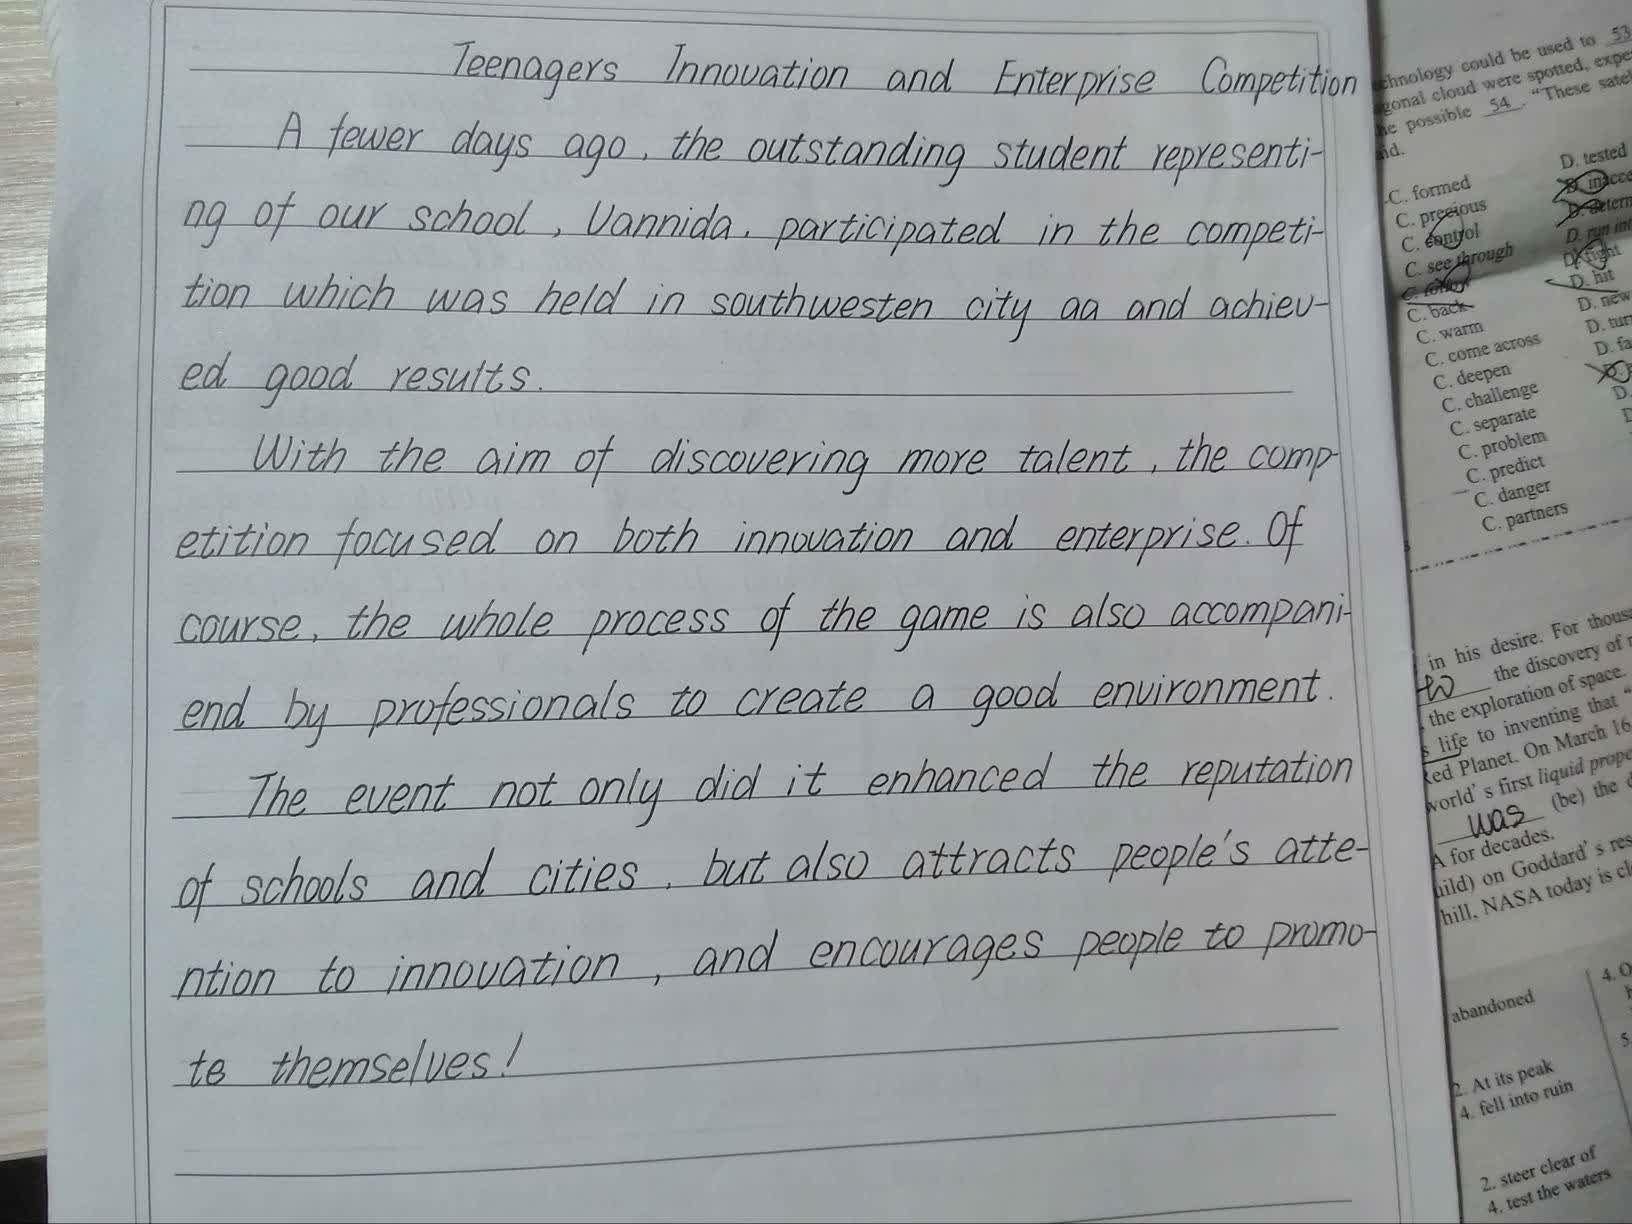 Teenagers Innovation and Enterprise Competition
A fewer days ago, the outstanding student representi-
ng of our school, Vannida, participated in the competi-
tion which was held in southwesten city aa and achiev-
ed good results.
With the aim of discovering more talent, the comp-
etition focused on both innovation and enterprise. Of
course, the whole process of the game is also accompani-
end by professionals to create a good environment.
The event not only did it enhanced the reputation
of schools and cities, but also attracts people's atte-
ntion to innovation, and encourages people to promo-
te themselves!
chnology could be used to 53
gonal cloud were spotted, expe
he possible 54. "These sate
aid.
C. formed D. tested
C. precious D. inacce
C. control D. determ
C. see through D. run int
D. fight
C. back D. hit
C. warm D. new
C. come across D. tur
C. deepen D. fa
C. challenge D.
C. separate
C. problem
C. predict
C. danger
C. partners
in his desire. For thous
the discovery of
the exploration of space.
s life to inventing that "
Red Planet. On March 16
world's first liquid prope
was (be) the
A for decades.
uild) on Goddard's res
hill, NASA today is cl
abandoned 4. O
2. At its peak 5
4. fell into ruin
2. steer clear of
4. test the waters